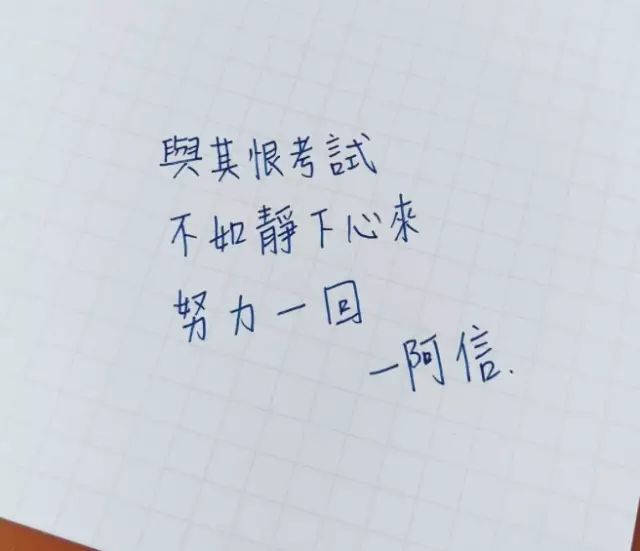 與其恨考試
不如靜下心來
努力一回
—阿信.